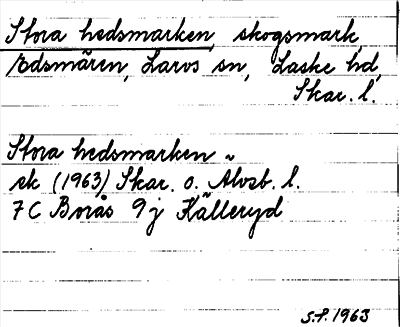 Stora hedsmarken, skogsmark,
Edsmären, Larvs sn, Laske hd,
Skar. l.
Stora hedsmarken
ek (1963) Skar. o. Älvsb. l.
7 C Borås 9 j Källeryd
S.F. 1963